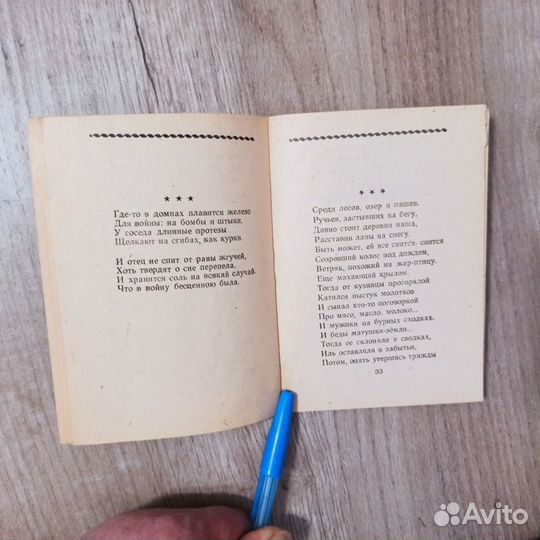 ★ ★ ★
Где-то в домнах плавится железо
Для войны: на бомбы и штыки.
У соседа длинные протезы
Щелкают на сгибах, как курки.
И отец не спит от раны жгучей,
Хоть твердят о сне перепела.
И хранится соль на всякий случай,
Что в войну бесценною была.
★ ★ ★
Среди лесов, озер и пашен,
Ручьев, застывших на бегу,
Давно стоит деревня наша,
Расставив лапы на снегу.
Быть может, ей все снится, снится
Созревший колос под дождем,
Ветряк, похожий на жар-птицу,
Еще махающий крылом.
Тогда от кузницы прогорклой
Катился выстук молотков
И сыпал кто-то поговоркой
Про мясо, масло, молоко...
И мужики на бурных сходках,
И беды матушки-земли...
Тогда ее склоняли в сводках,
Иль оставляли в забытьи,
Потом, опять утершись трижды
33
Avito